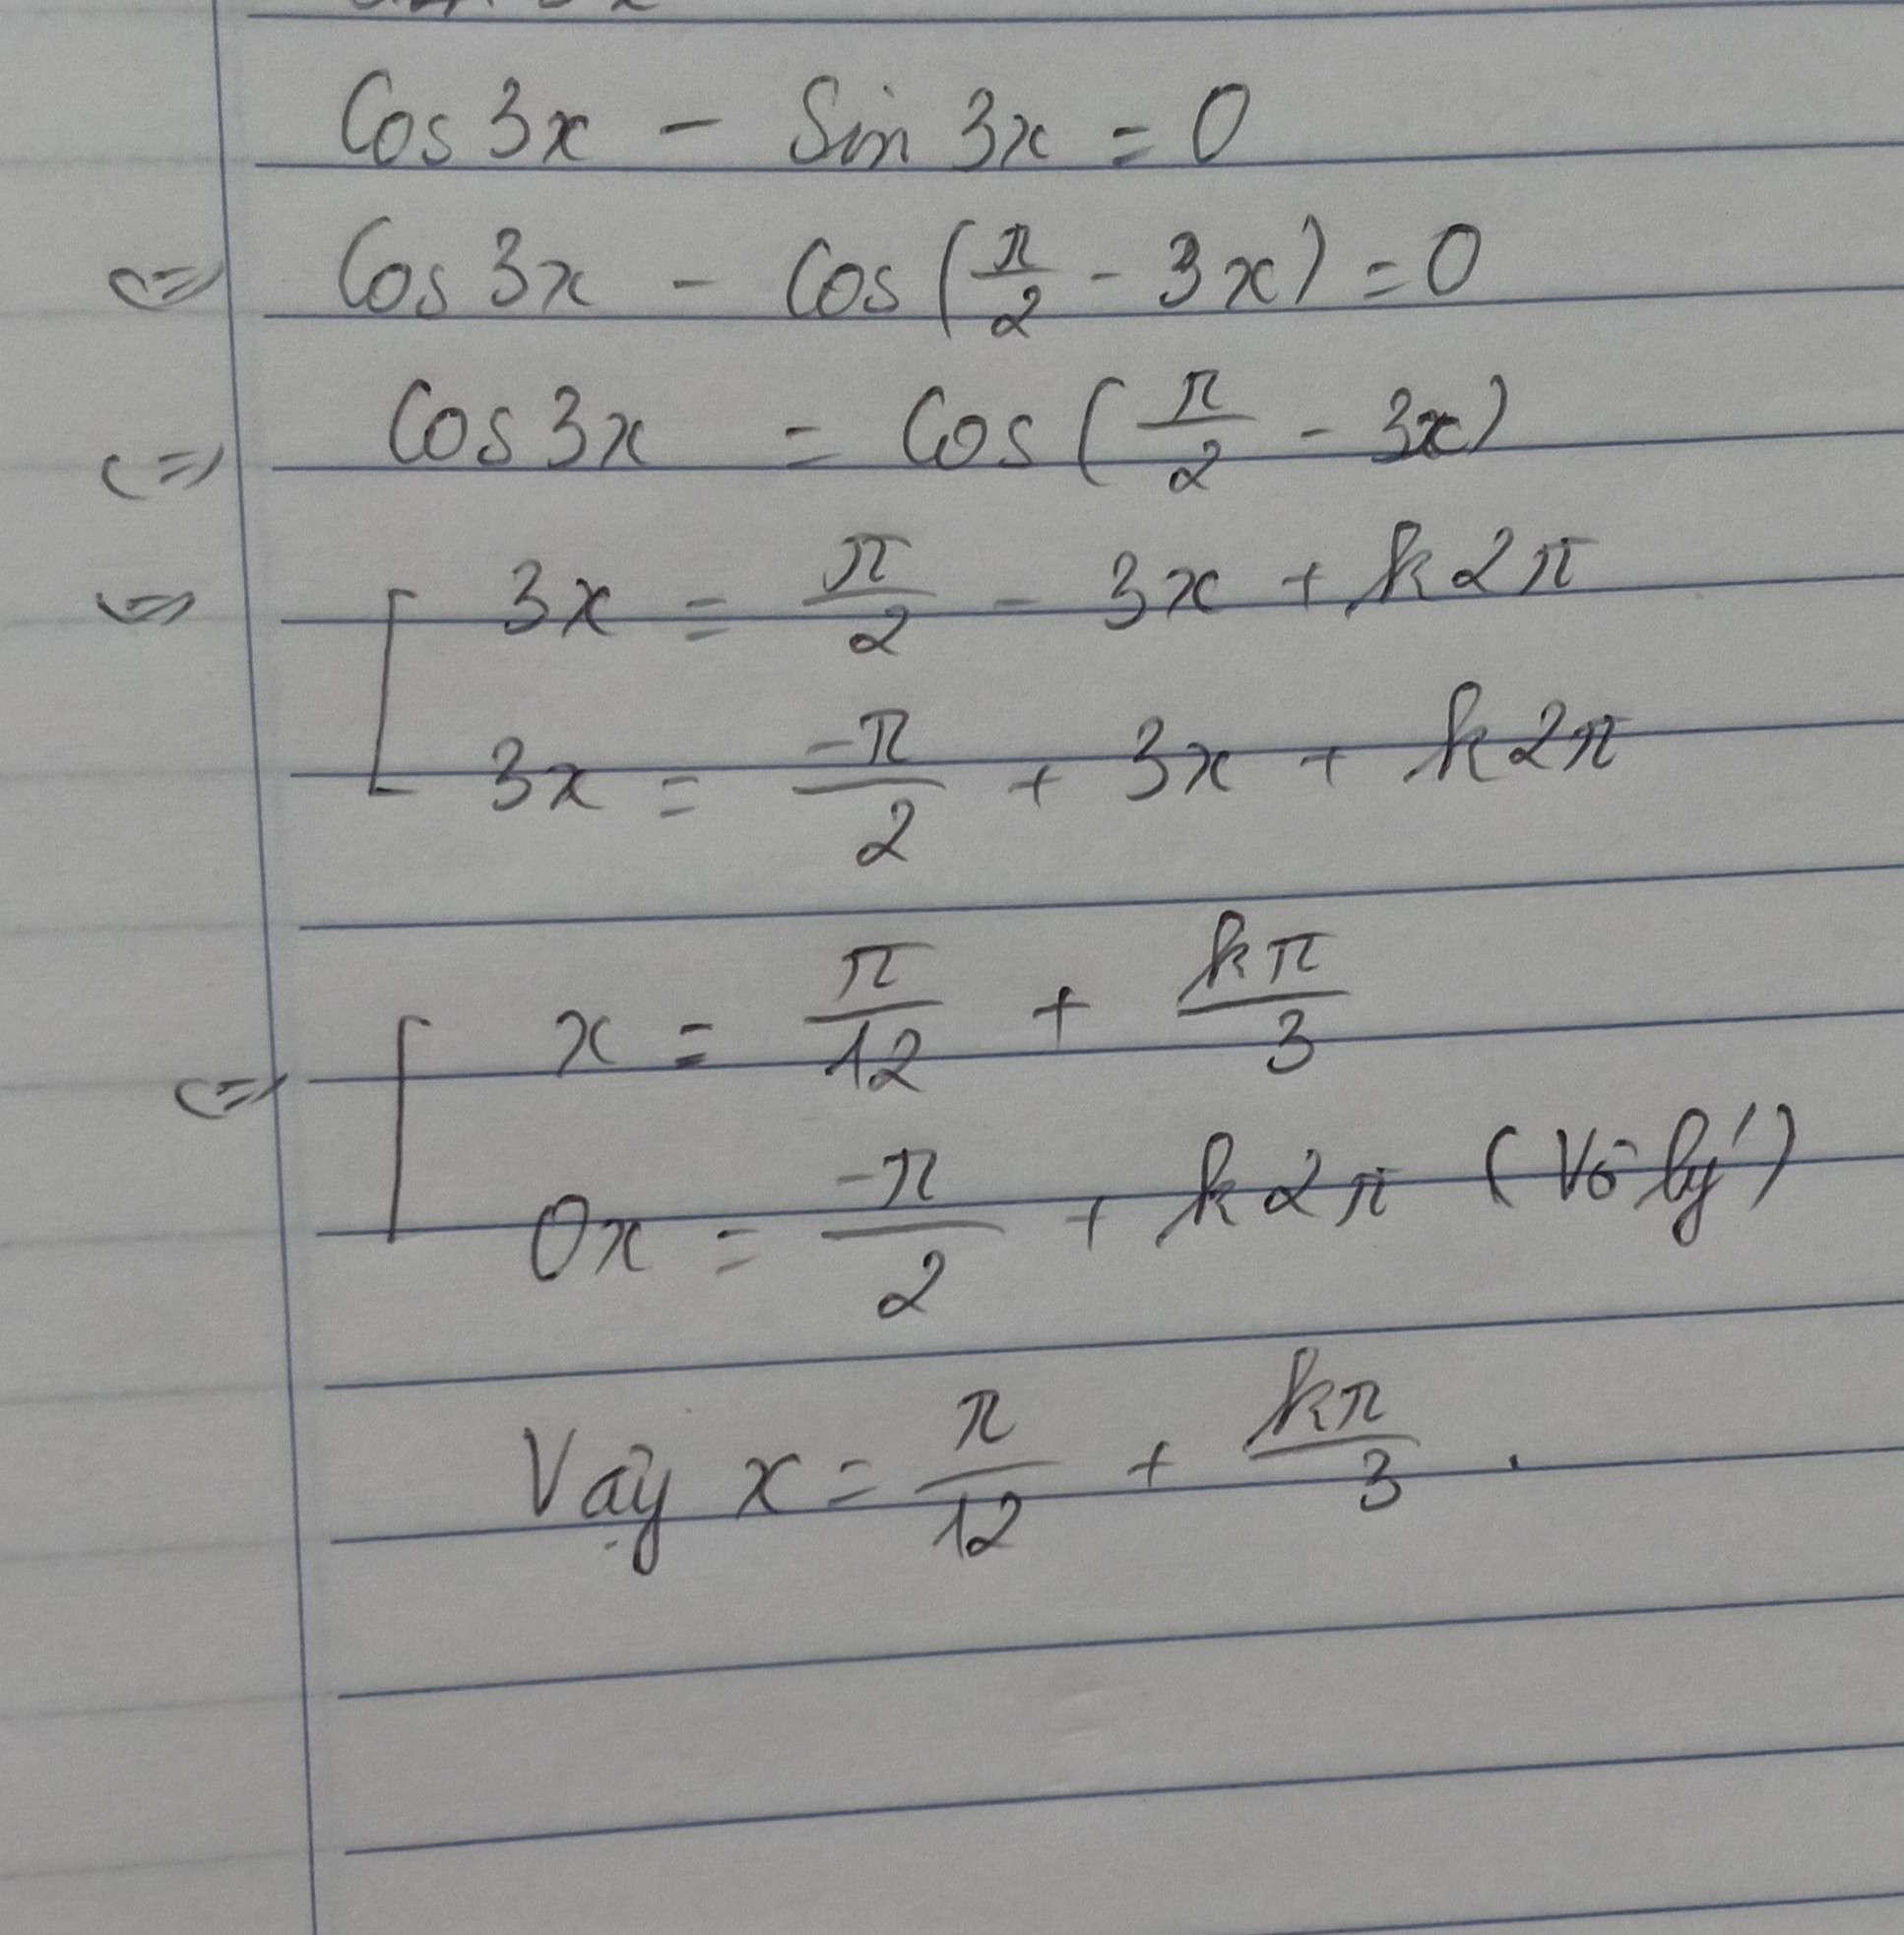 Cos 3x - Sin 3x = 0
<=> Cos 3x - Cos (π/2 - 3x) = 0
<=> Cos 3x = Cos (π/2 - 3x)
<=> [ 3x = π/2 - 3x + k2π
3x = -π/2 + 3x + k2π
<=> [ x = π/12 + kπ/3
0x = -π/2 + k2π (Vô lý)
Vậy x = π/12 + kπ/3 .